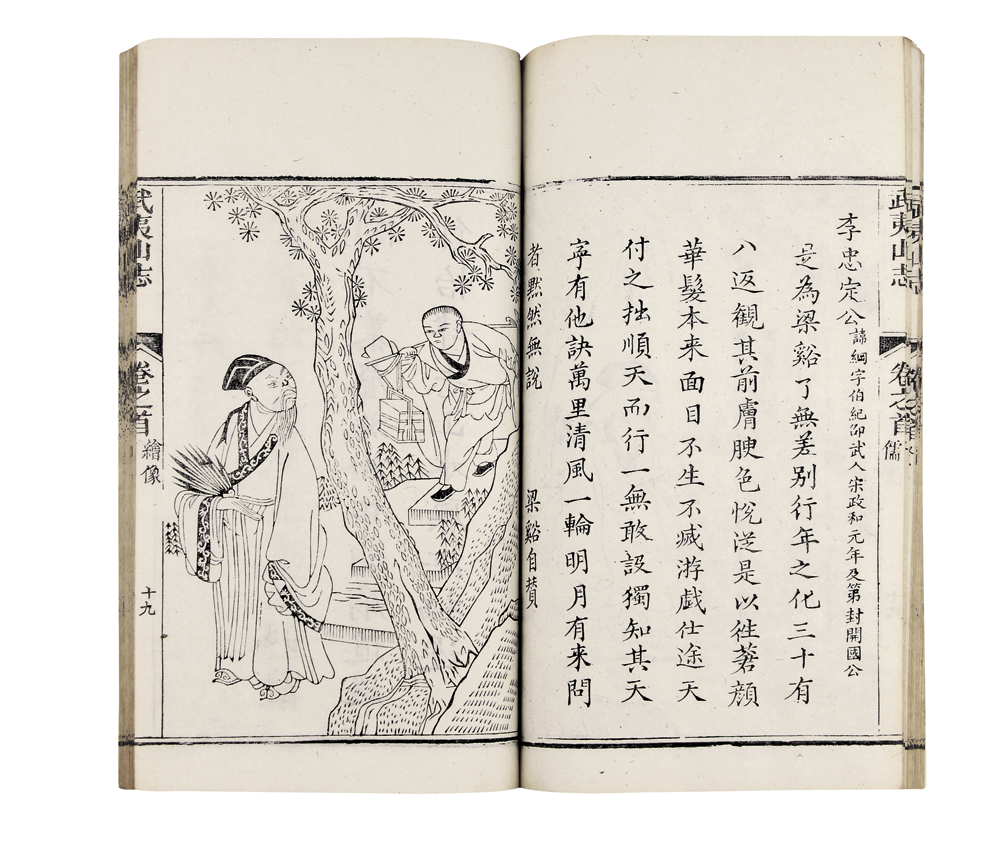 武夷山志
卷之首
儒
李忠定公 諱綱字伯紀邵武人宋政和元年及第封開國公
是為梁谿了無差別行年之化三十有
八返觀其前膚腴色悅從是以往蒼顏
華髮本来面目不生不滅游戲仕途天
付之拙順天而行一無敢設獨知其天
寧有他訣萬里清風一輪明月有来問
者黙然無說 梁谿自贊
武夷山志
卷之首
繪像
十九